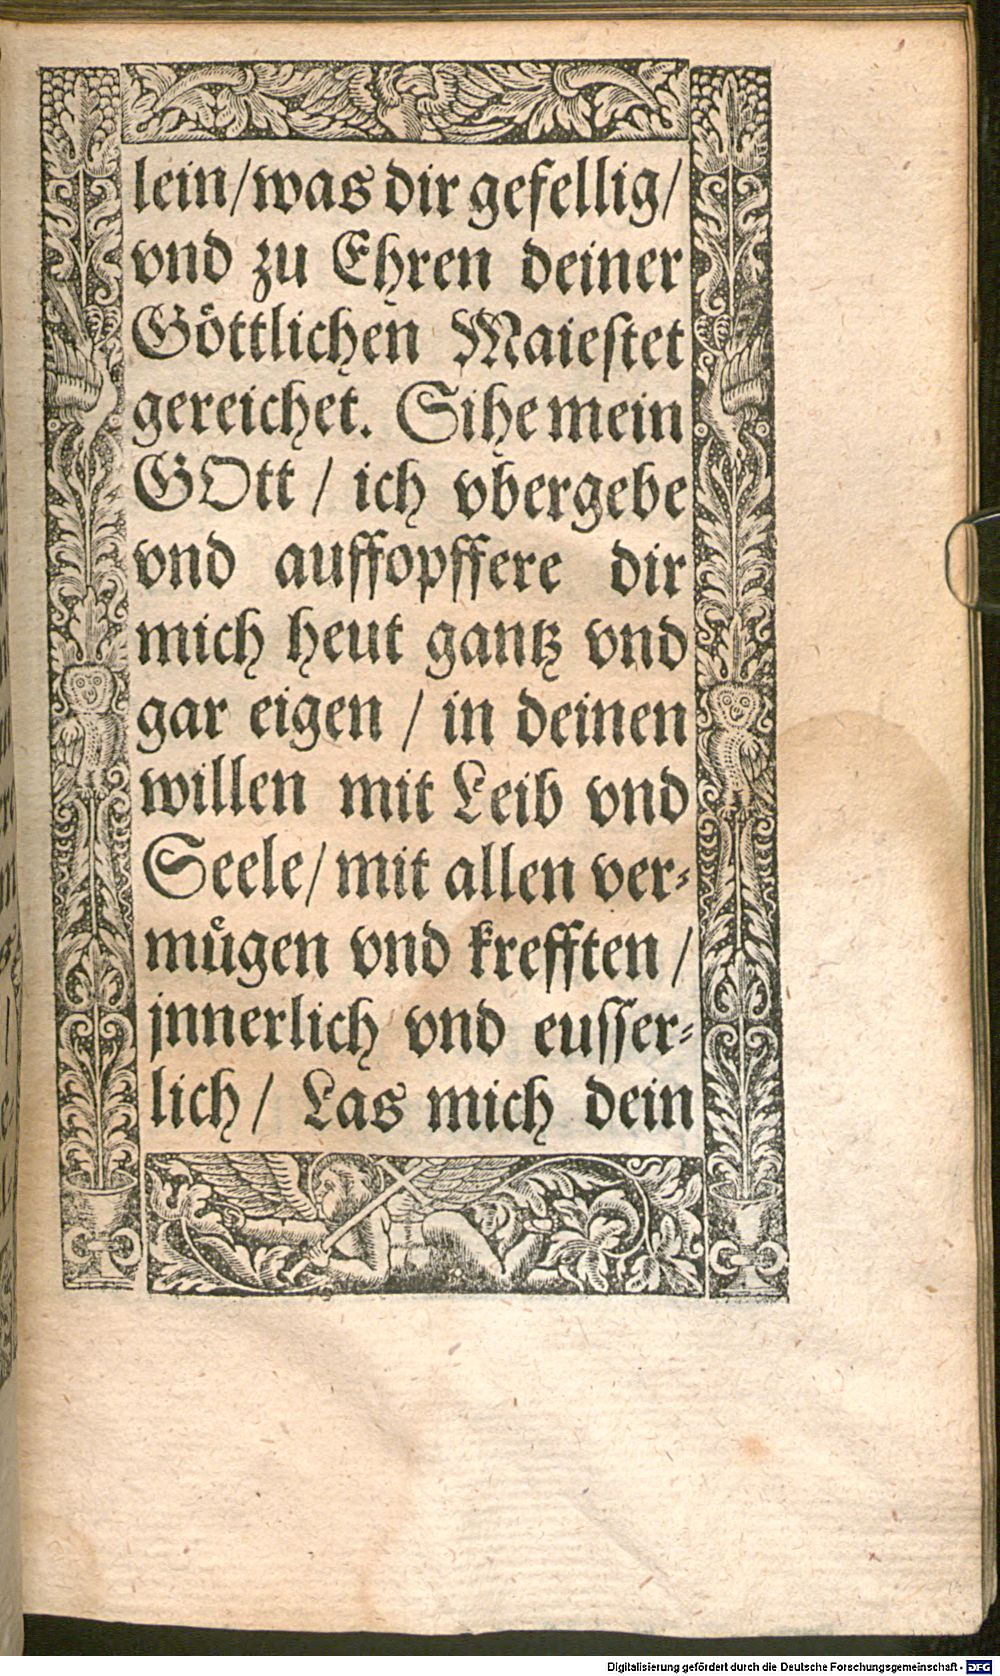 lein/was dir gefellig/
vnd zu Ehren deiner
Göttlichen Maiestet
gereichet. Sihe mein
GOtt / ich vbergebe
vnd auffopffere dir
mich heut gantz vnd
gar eigen / in deinen
willen mit Leib vnd
Seele/ mit allen ver-
mügen vnd krefften /
jnnerlich vnd eusser-
lich/ Las mich dein
Digitalisierung gefördert durch die Deutsche Forschungsgemeinschaft - DFG